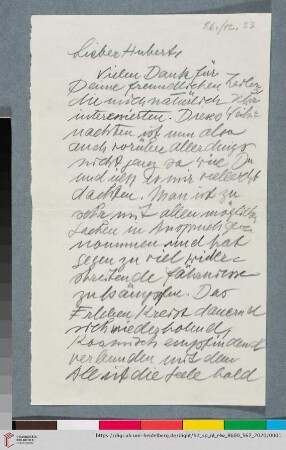 26./12.33
Lieber Huberts
Vielen Dank für
Deine freundlichen Zeilen
die mich natürlich sehr
interessierten. Dieses Weih-
nachten ist nun also
auch vorüber allerdings
nicht ganz so wie Du
und ich es mir vielleicht
dachten. Man ist zu
sehr mit allen möglichen
Sachen in Anspruch ge-
nommen und hat
gegen zu viel wider-
streitende
zu kämpfen. Das
Erleben kreist dauernd
sich wiederholend,
Kosmisch empfindend
verbunden mit dem
All ist die Seele bald
https://digi.ub.uni-heidelberg.de/diglit/